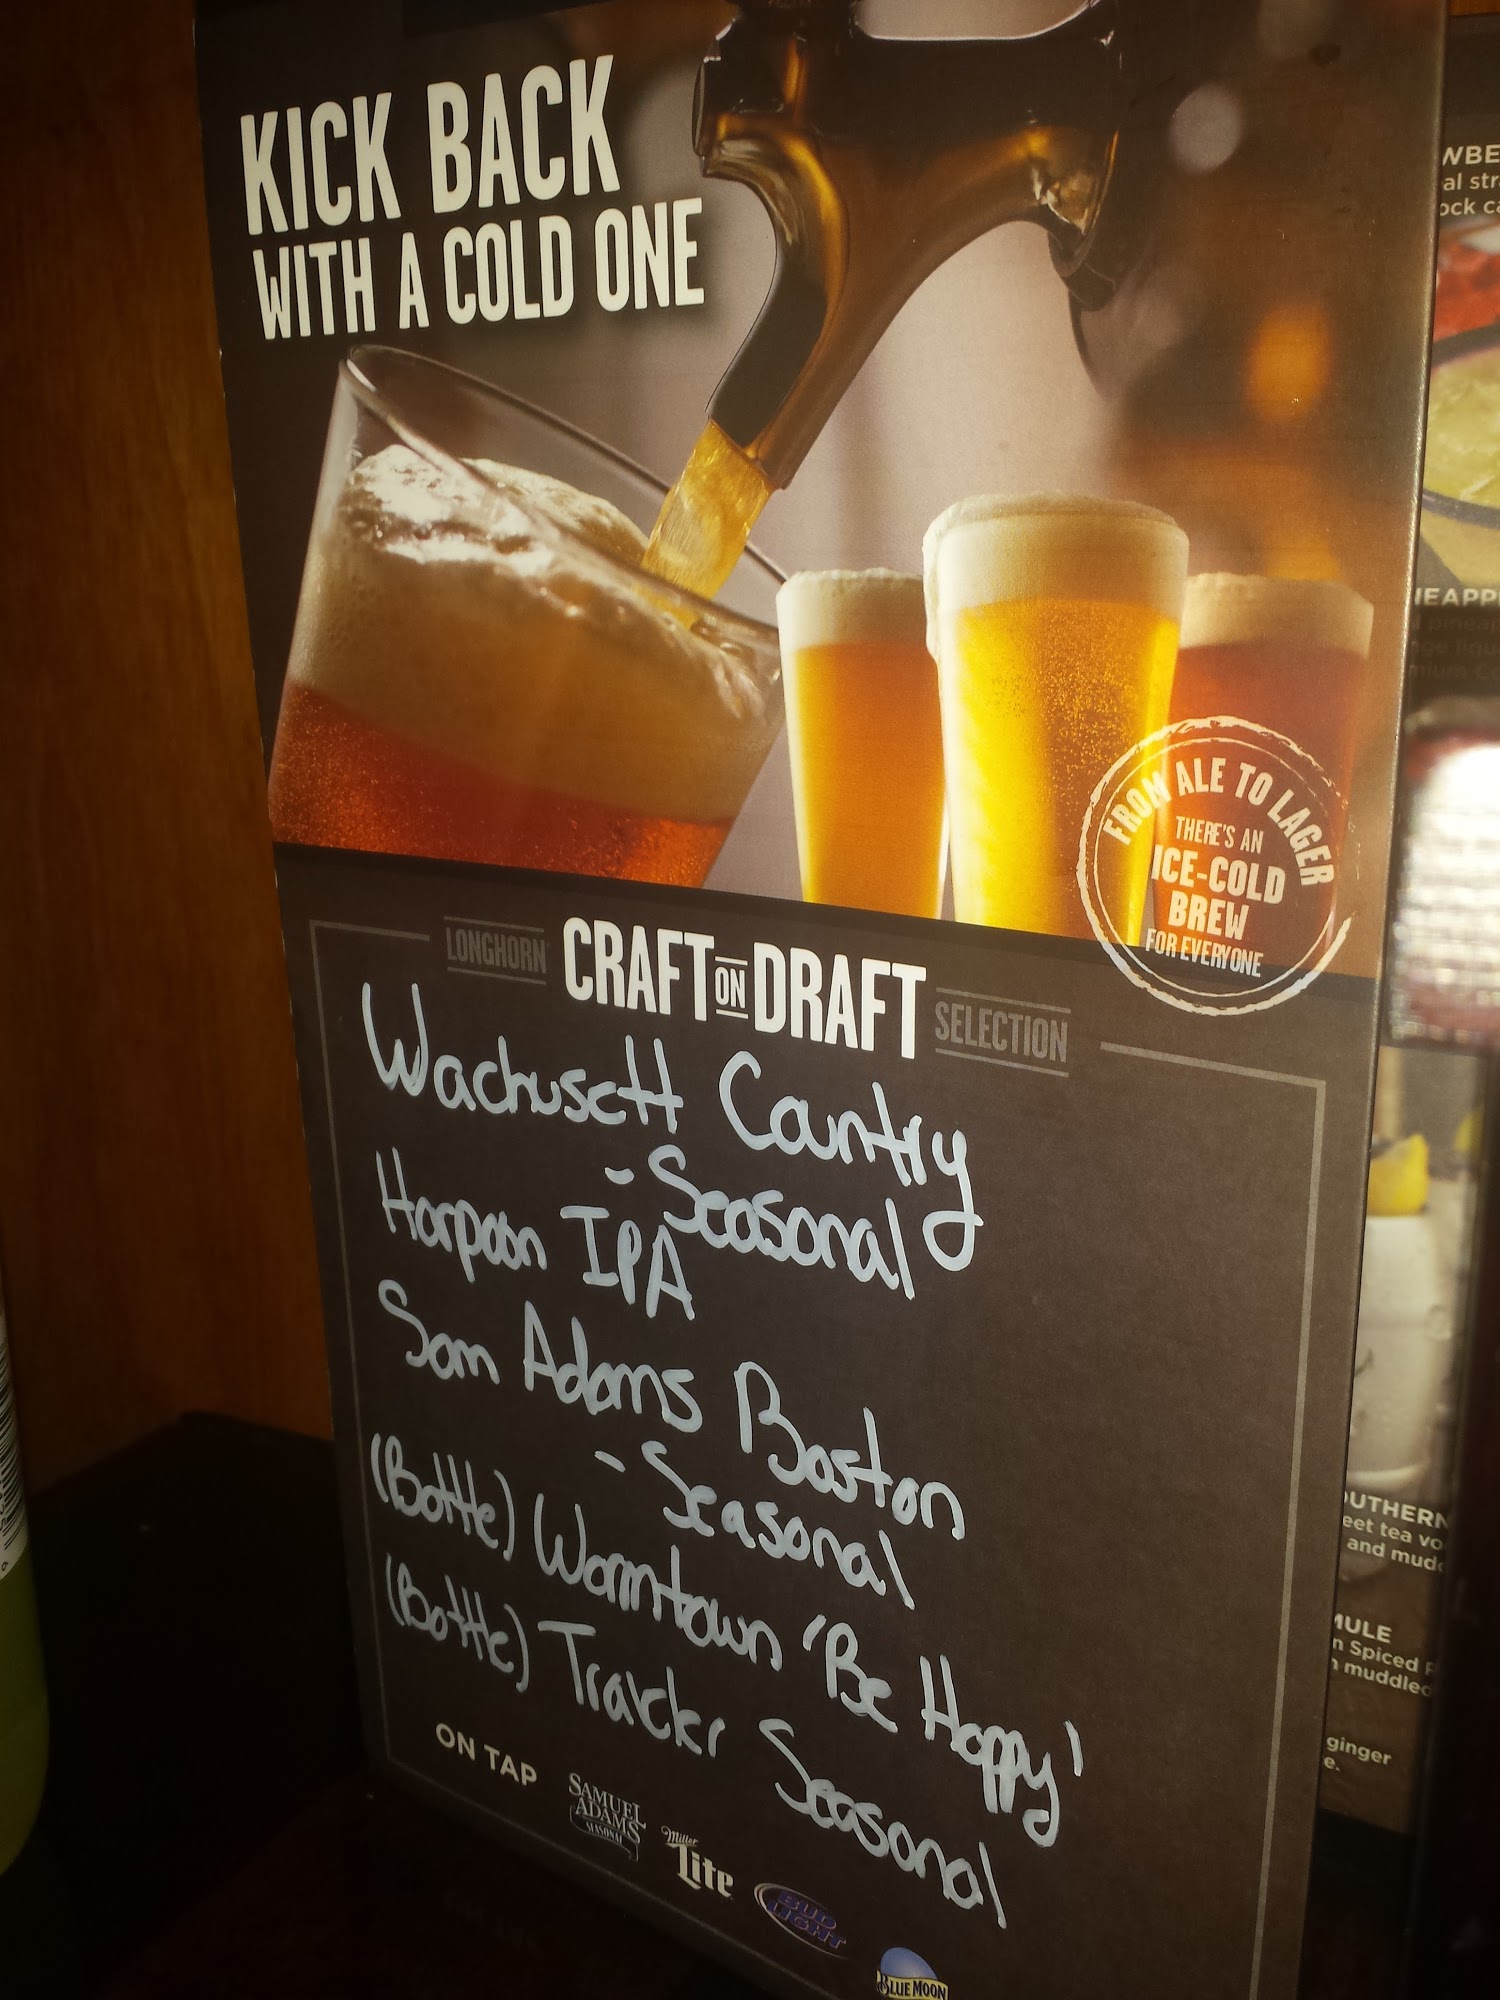 KICK BACK
WITH A COLD ONE
FROM ALE TO LAGER
THERE'S AN
ICE-COLD
BREW
FOR EVERYONE
LONGHORN CRAFT ON DRAFT SELECTION
Wachusett Country
- Seasonal
Harpoon IPA
Sam Adams Boston
- Seasonal
(Bottle) Wormtown 'Be Hoppy'
(Bottle) Traveler Seasonal
ON TAP
SAMUEL
ADAMS
SEASONAL
Miller
Lite
BUD
LIGHT
BLUE MOON
al
OUTHERN
eet tea vo
and mudd
MULE
n Spiced
muddled
ginger
e.